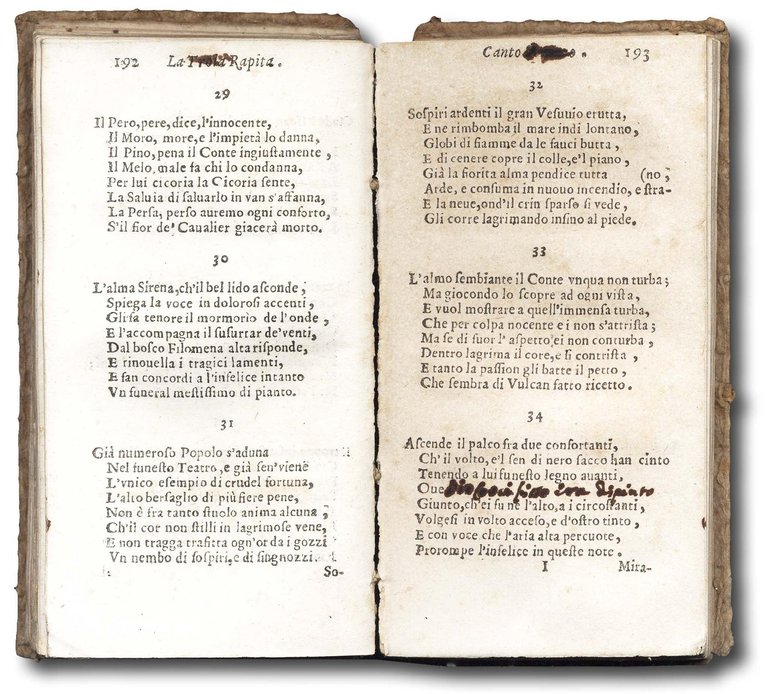 192 La Troia Rapita.
29
Il Pero, pere, dice, l'innocente,
Il Moro, more, e l'impietà lo danna,
Il Pino, pena il Conte ingiustamente,
Il Melo, male fa chi lo condanna,
Per lui cicoria la Cicoria sente,
La Saluia di saluarlo in van s'affanna,
La Persa, perso auremo ogni conforto,
S'il fior de' Caualier giacerà morto.
30
L'alma Sirena, ch'il bel lido asconde,
Spiega la voce in dolorosi accenti,
Gli fa tenore il mormorio de l'onde,
E l'accompagna il susurrar de'venti,
Dal bosco Filomena alta risponde,
E rinouella i tragici lamenti,
E fan concordi a l'infelice intanto
Vn funeral mestissimo di pianto.
31
Già numeroso Popolo s'aduna
Nel funesto Teatro, e già sen'viene
L'vnico esempio di crudel fortuna,
L'alto bersaglio di più fiere pene,
Non è fra tanto stuolo anima alcuna,
Ch'il cor non stilli in lagrimose vene,
E non tragga trafitta ogn'or da i gozzi
Vn nembo di sospiri, e di singnozzi.
So-
Canto . 193
32
Sospiri ardenti il gran Vesuuio erutta,
E ne rimbomba il mare indi lontano,
Globi di fiamme da le fauci butta,
E di cenere copre il colle, e'l piano,
Già la fiorita alma pendice tutta (no,
Arde, e consuma in nuouo incendio, e stra-
E la neue, ond'il crin sparso si vede,
Gli corre lagrimando insino al piede.
33
L'almo sembiante il Conte vnqua non turba;
Ma giocondo lo scopre ad ogni vista,
E vuol mostrare a quell'immensa turba,
Che per colpa nocente ei non s'attrista;
Ma se di fuor l'aspetto ei non conturba,
Dentro lagrima il core, e si contrista,
E tanto la passion gli batte il petto,
Che sembra di Vulcan fatto ricetto.
34
Ascende il palco fra due confortanti,
Ch'il volto, e'l sen di nero sacco han cinto
Tenendo a lui funesto legno auanti,
Oue era dipinto
Giunto, ch'ei fu ne l'alto, a i circostanti,
Volgesi in volto acceso, e d'ostro tinto,
E con voce che l'aria alta percuote,
Prorompe l'infelice in queste note.
I Mira-